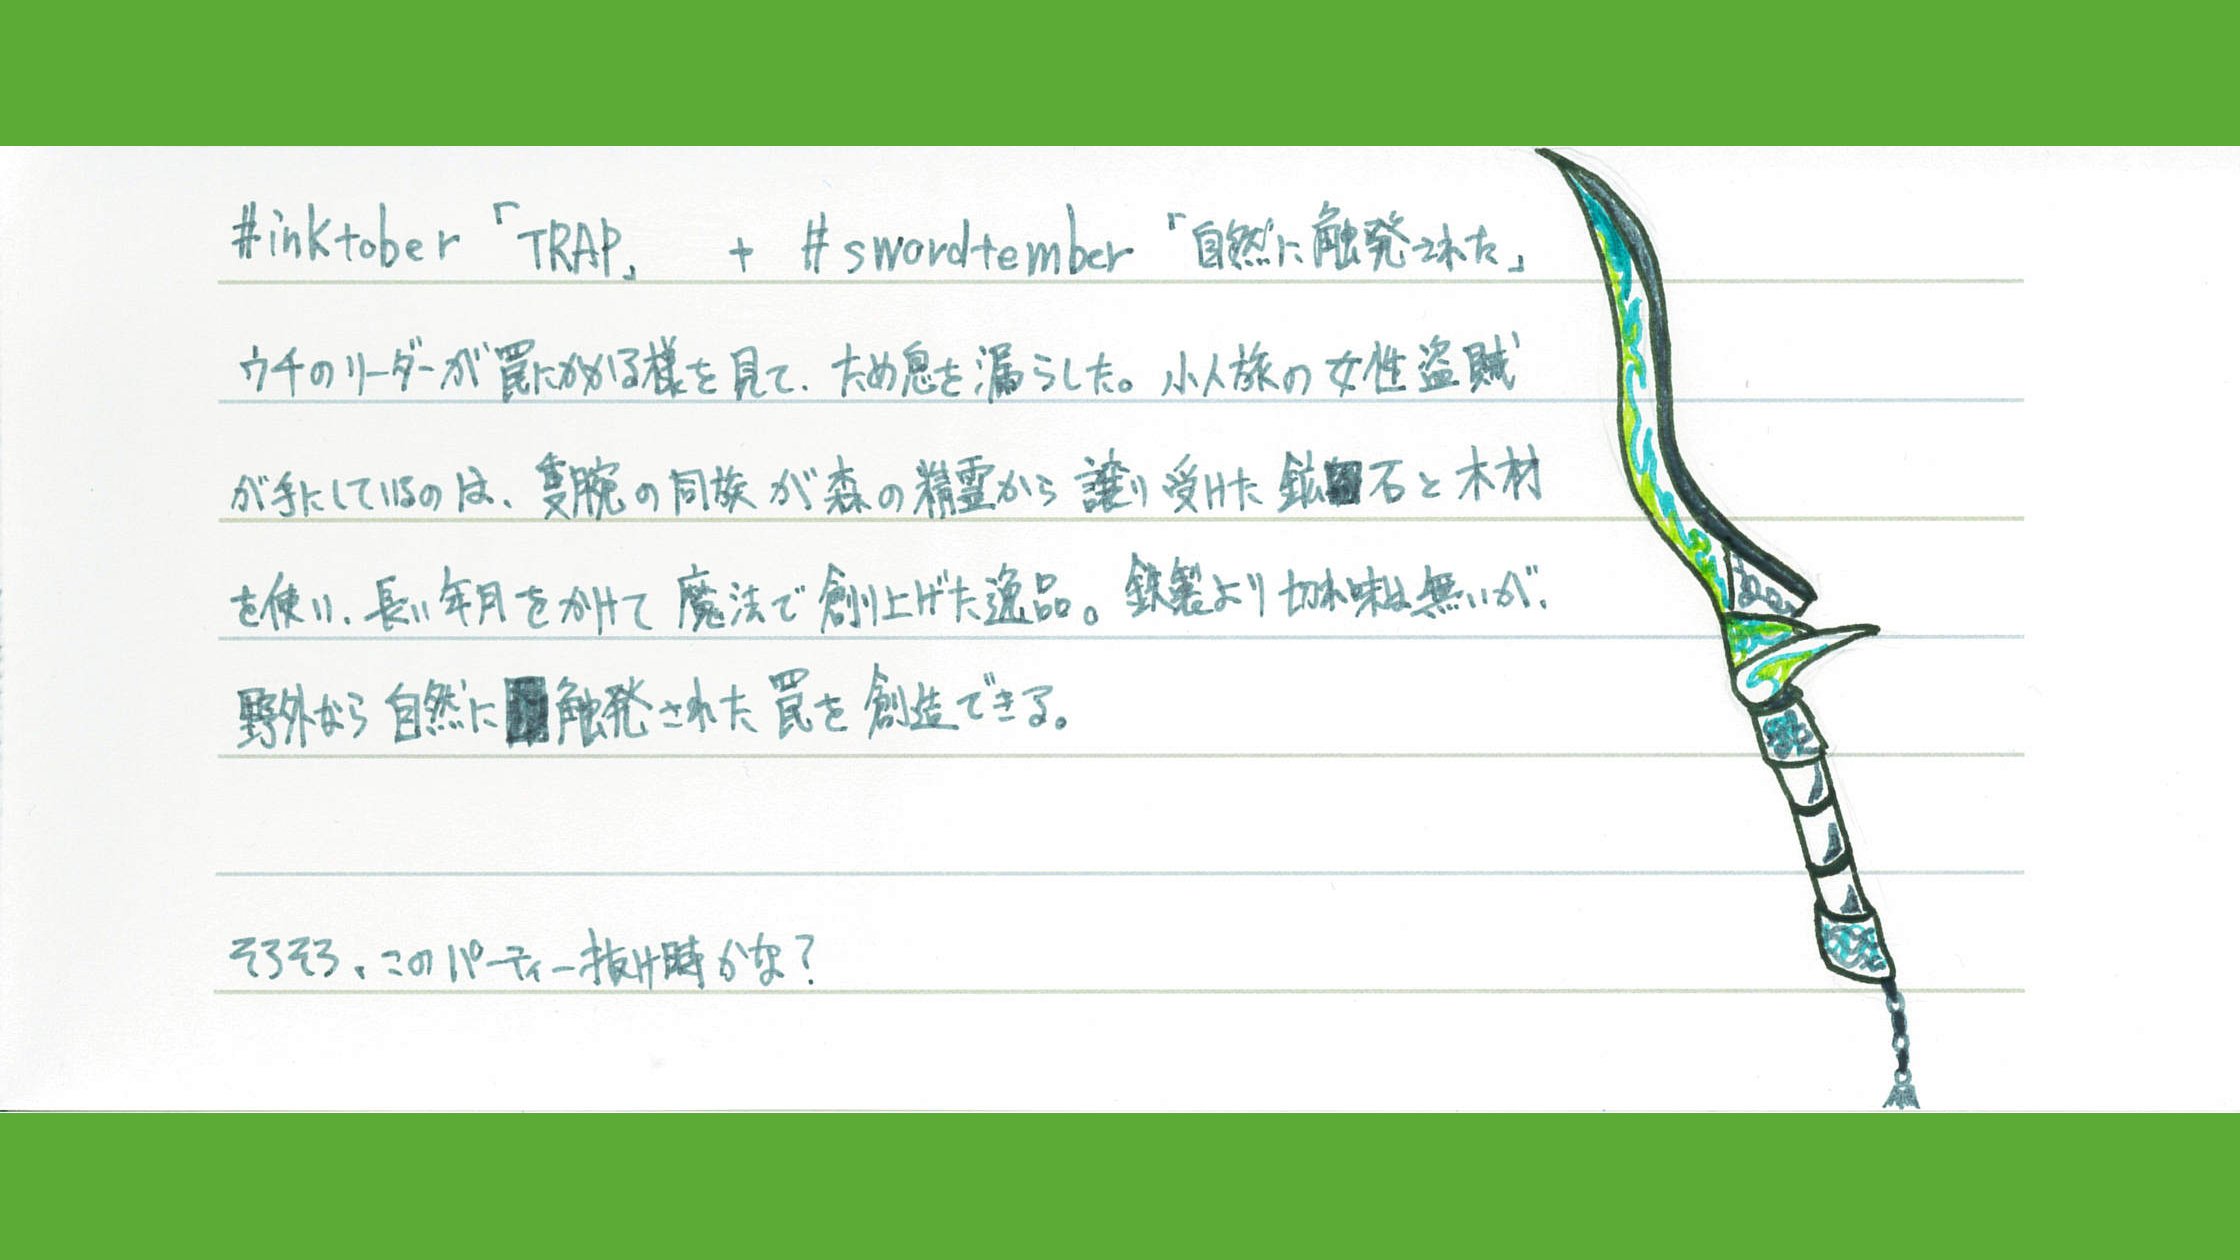 #inktober 「TRAP」 + #swordtember 「自然に触発された」
ウチのリーダーが罠にかかる様を見て、ため息を漏らした。小人族の女性盗賊
が手にしているのは、隻腕の同族が森の精霊から譲り受けた鉱石と木材
を使い、長い年月をかけて魔法で創り上げた逸品。鉄製より切れ味は無いが、
野外なら自然に触発された罠を創造できる。
そろそろ、このパーティー抜け時かな?